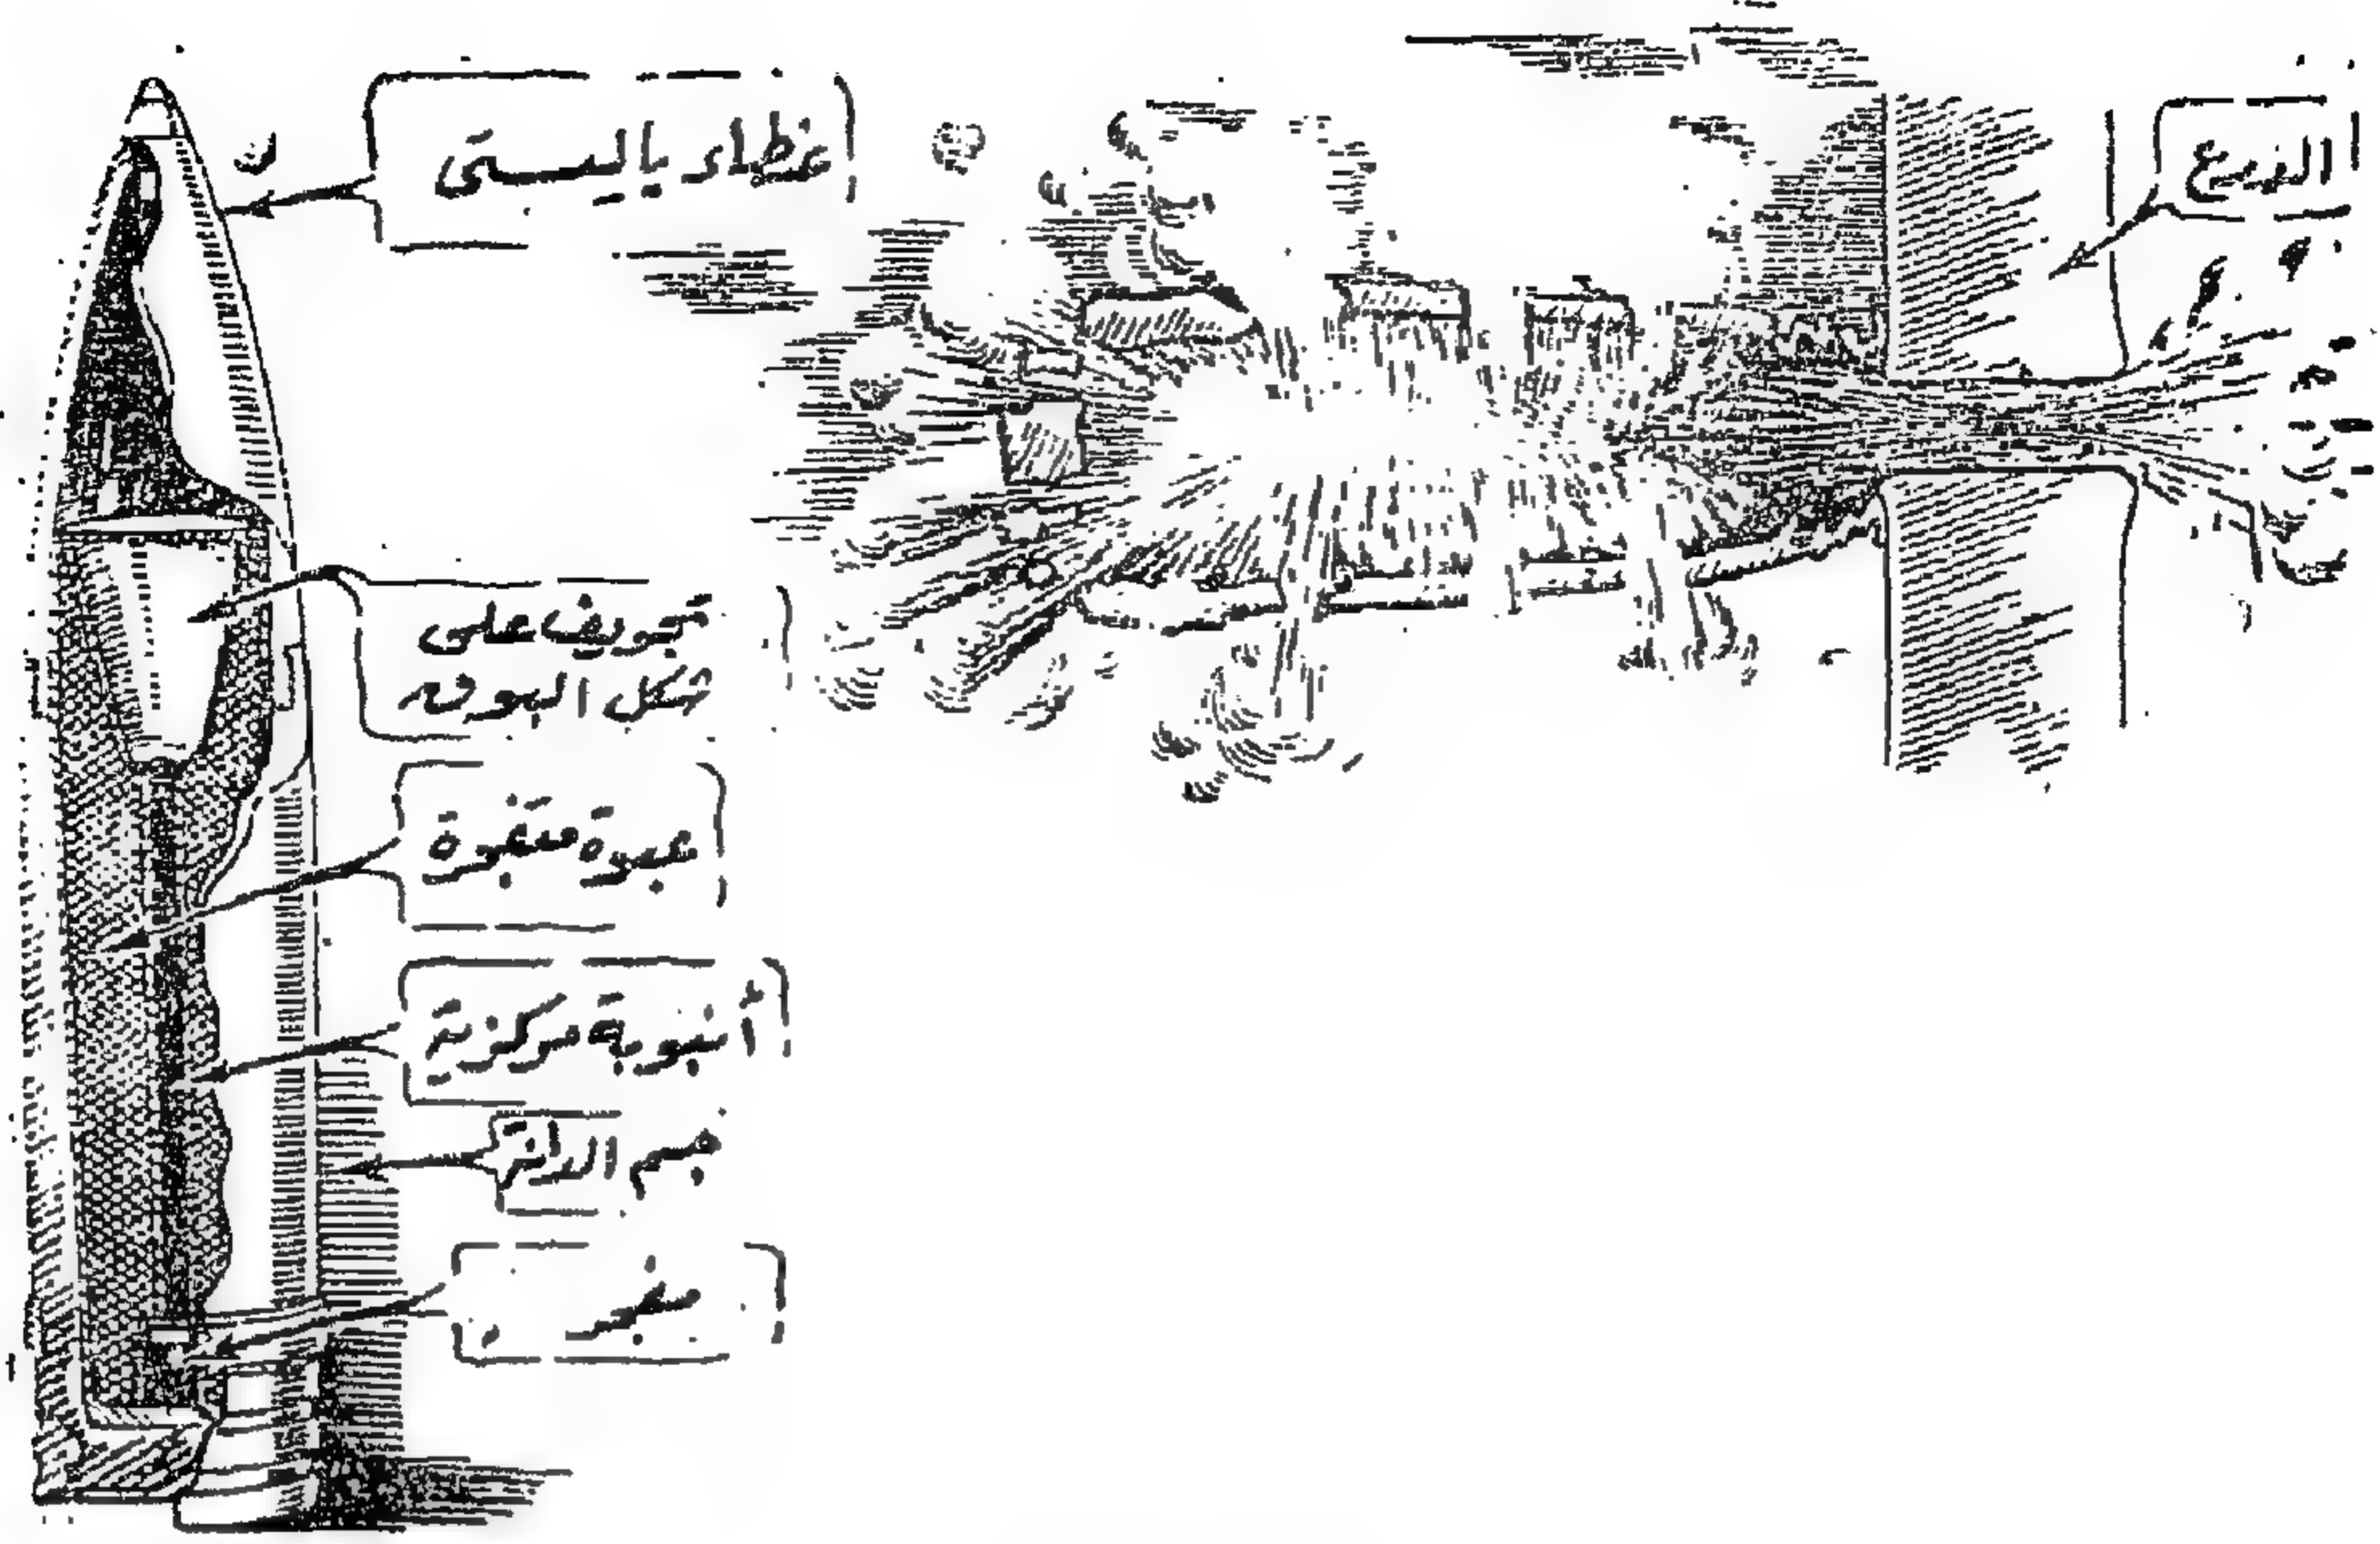 غطاء باليستى
الدرع
تجويف على
شكل البوق
عبوة متفجرة
أنبوبة مركزية
جسم الدانة
مفجر